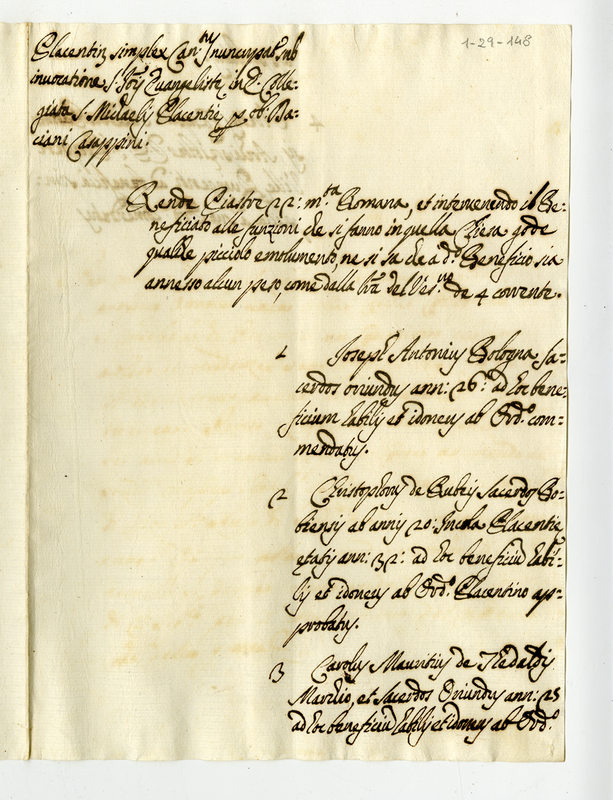 1-29-148
Placentin, simplex Can:tus nuncupat: sub
invocatione S: Jois Evangeliste, in d.a Colle-
giata S. Michaelis Placentie, p ob: Ba-
ciani Casappini.
Rende Piastre 22: m.ta Romana, et intervenendo il Be-
neficiato alle funzioni che si fanno in quella Chiesa gode
qualche picciolo emolumento, ne si sa che a d.o Beneficio sia
annesso alcun peso, come dalla lr̃a del Ves.vo de 4 corrente.
1 Joseph Antonius Bologna Sa-
cerdos oriundus ann: 26: ad hoc bene-
ficium habilis et idoneus ab Ord.o com-
mendatus.
2 Christophorus de Rubeis Sacerdos Bo-
biensis ab annis 20: Incola Placentie
etatis ann: 32: ad hoc beneficiu habi-
lis et idoneus ab Ord.o Placentino ap-
probatus.
3 Carolus Mauritius de Thedaldis
Marchio, et Sacerdos Oriundus ann: 25
ad hoc beneficiu habilis et idoneus ab Ord.o